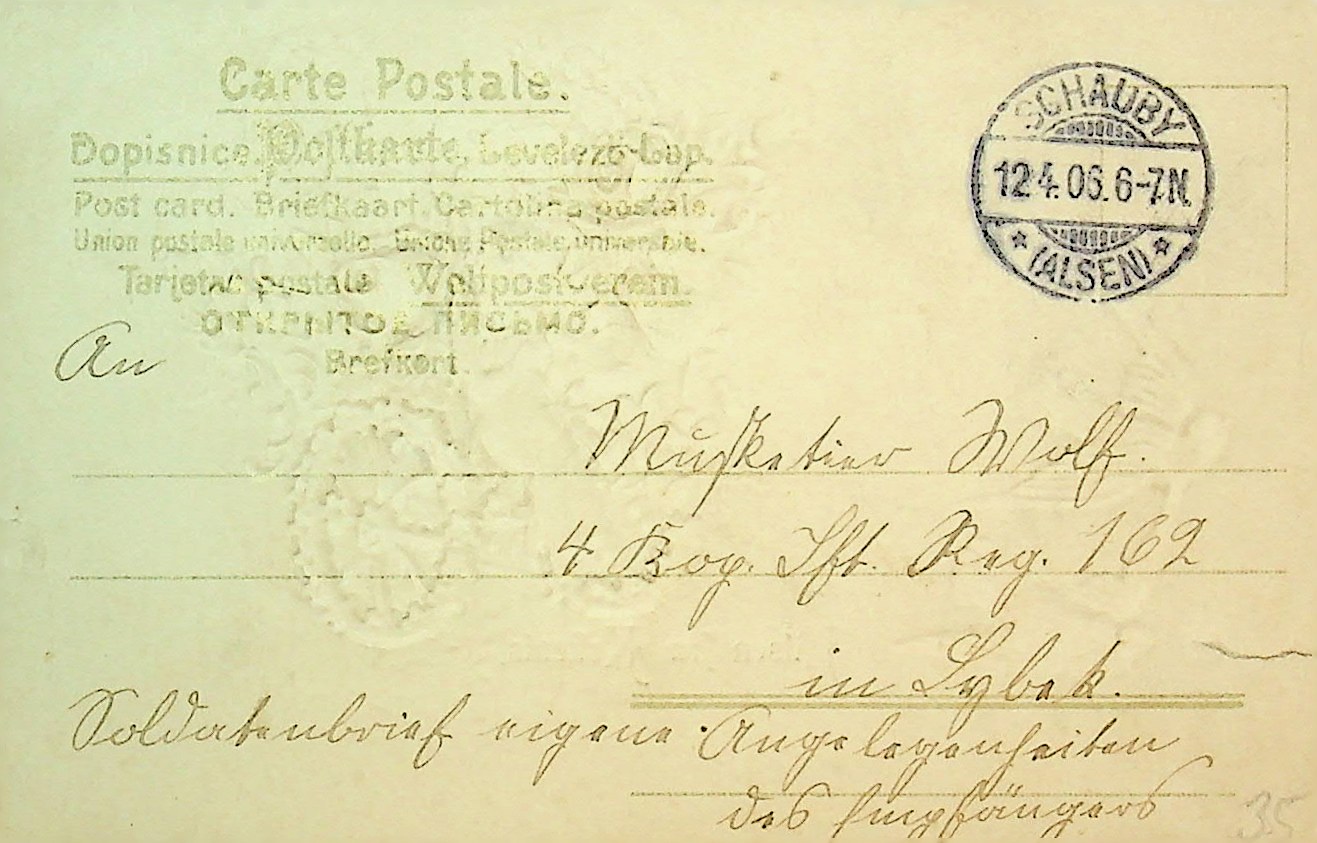 Carte Postale.
Dopisnice. Postkarte, Levelező-Lap.
Post card. Briefkaart. Cartolina postale.
Union postale universelle. Unione Postale universale.
Tarjetas postale Weltpostverein.
ОТКРЫТОЕ ПИСЬМО.
Brefkort.
SCHAUBY
12 4. 06. 6-7.N.
* (ALSEN) *
An
Musketier Wolf.
4 Kop. Ift. Reg. 162
in Lybek.
Soldatenbrief eigene Angelegenheiten
des Empfängers
35